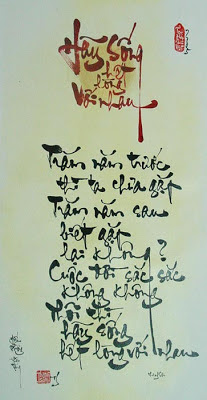 Hãy sống
hết
lòng
với nhau
Trăm năm trước
thì ta chưa gặp
Trăm năm sau
biết gặp
lại không?
Cuộc đời sắc sắc
không không
Thôi thì
hãy sống
hết lòng với nhau